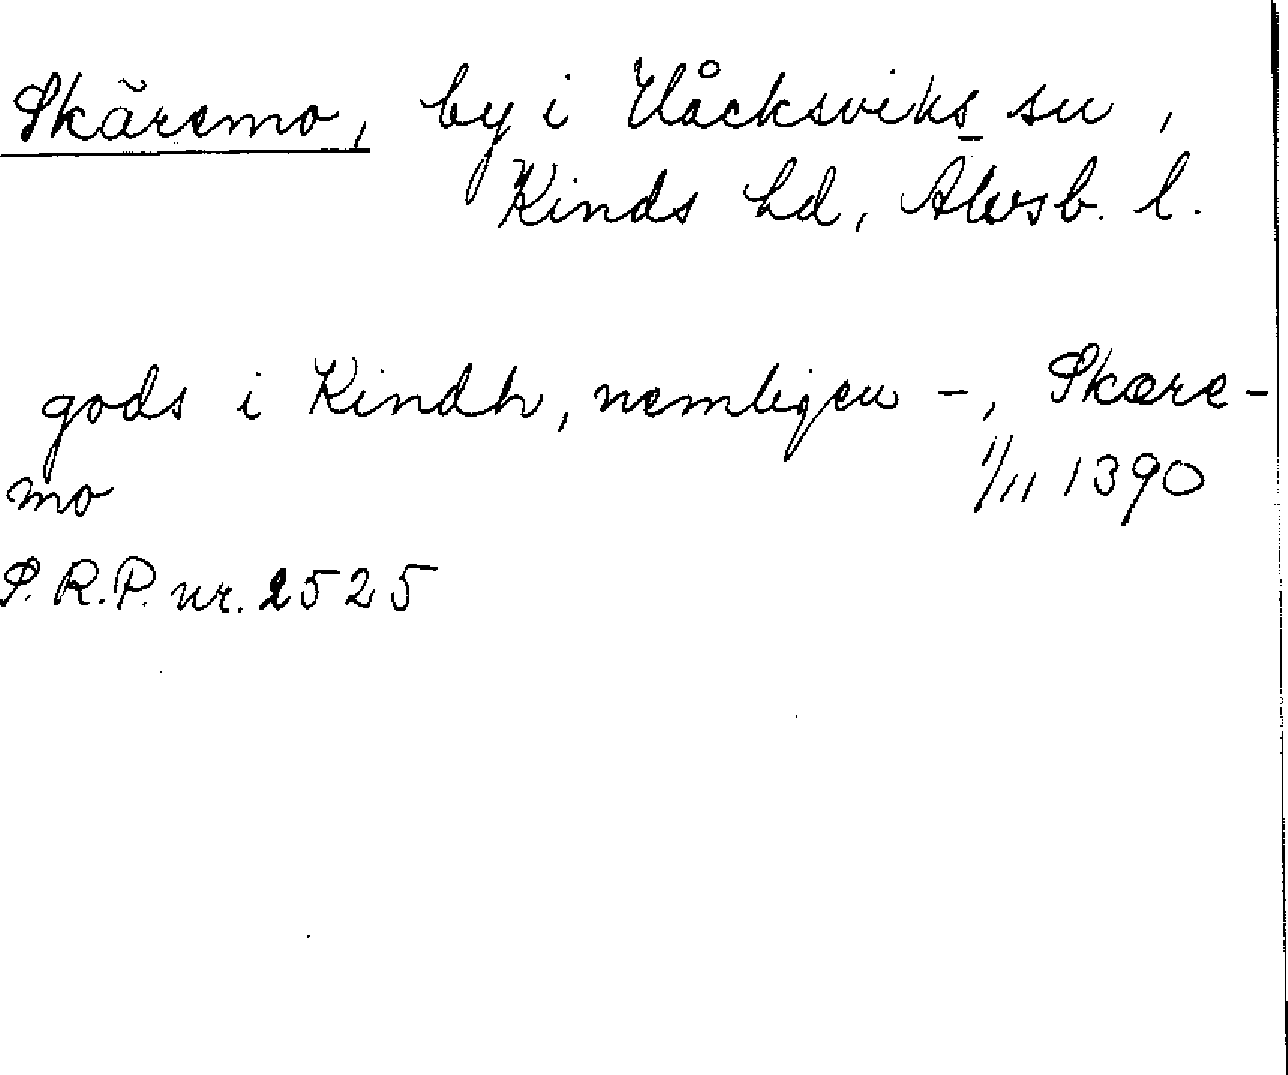 Skäremo, by i Håcksviks sn,
Kinds hd, Älvsb. l.
gods i Kindh, nemligen -, Skære-
mo 1/11 1390
P.R.P. nr. 2525